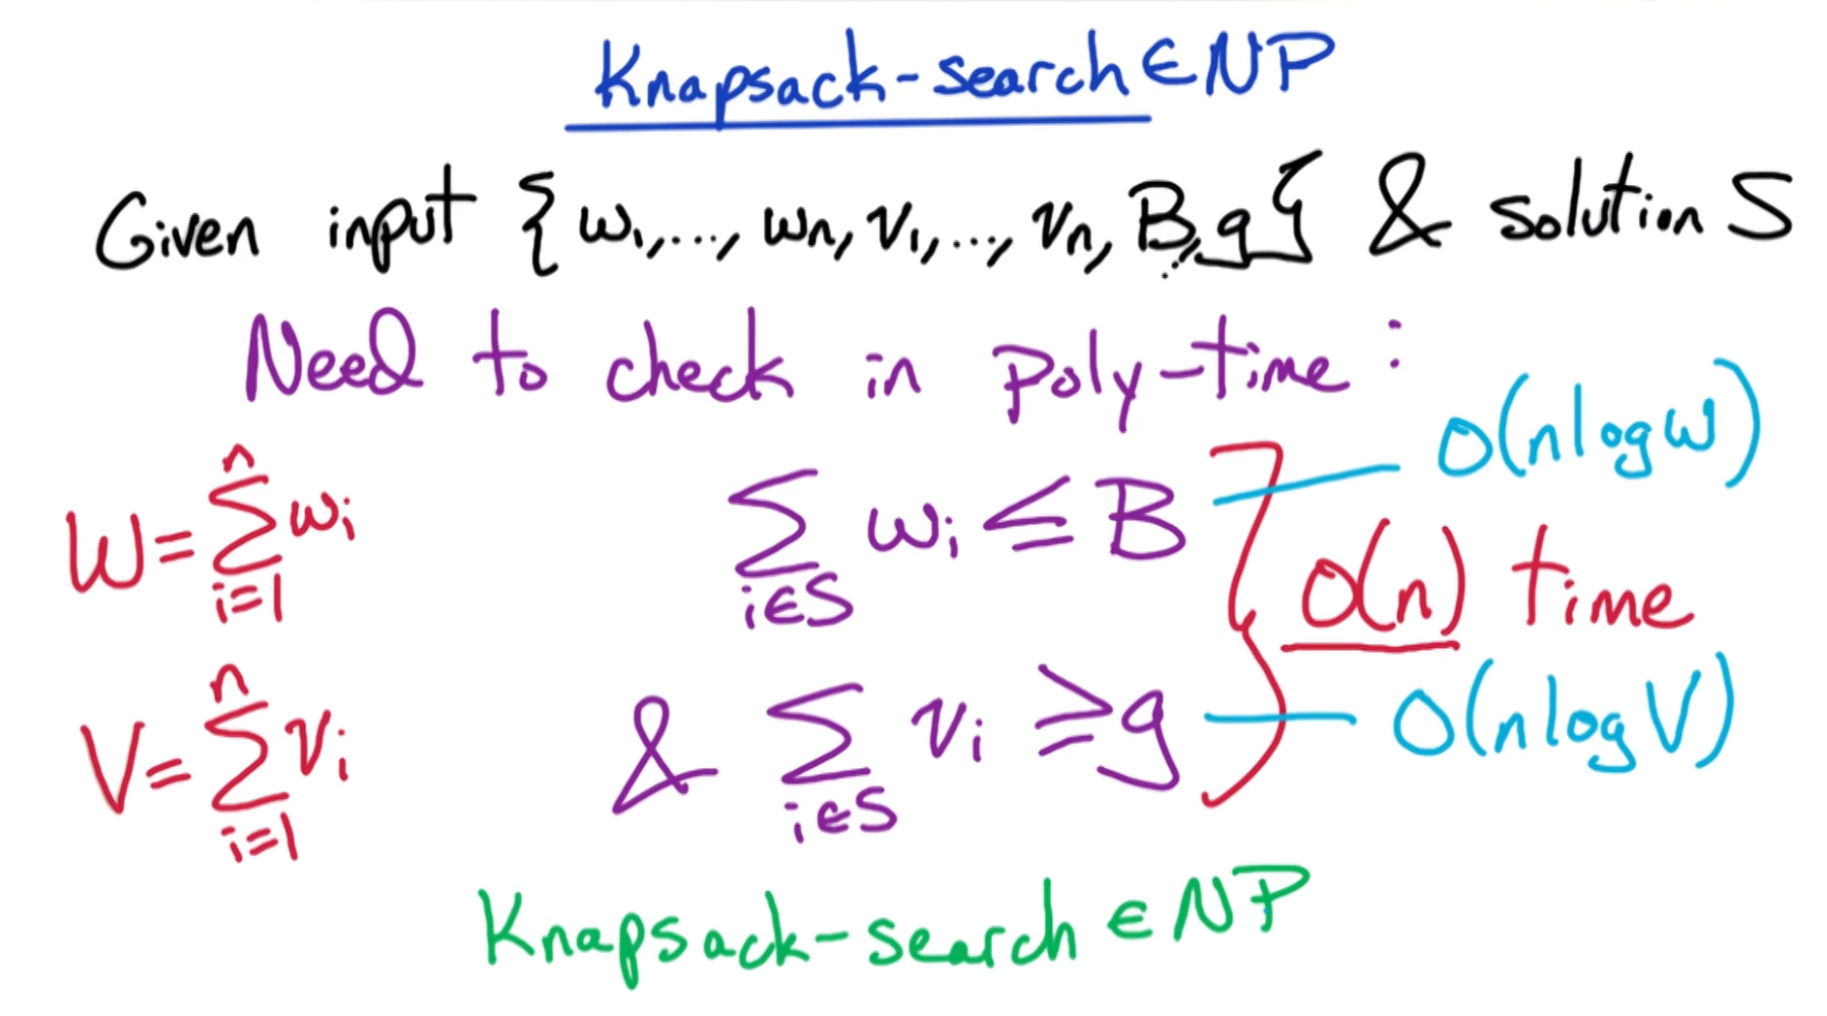 Knapsack-search ∈ NP
Given input {w₁,..., wₙ, v₁,..., vₙ, B, g} & solution S
Need to check in poly-time:
O(n log W)
W = ∑ⁿᵢ₌₁ wᵢ
∑_{i∈S} wᵢ ≤ B
O(n) time
V = ∑ⁿᵢ₌₁ vᵢ
& ∑_{i∈S} vᵢ ≥ g
O(n log V)
Knapsack-search ∈ NP